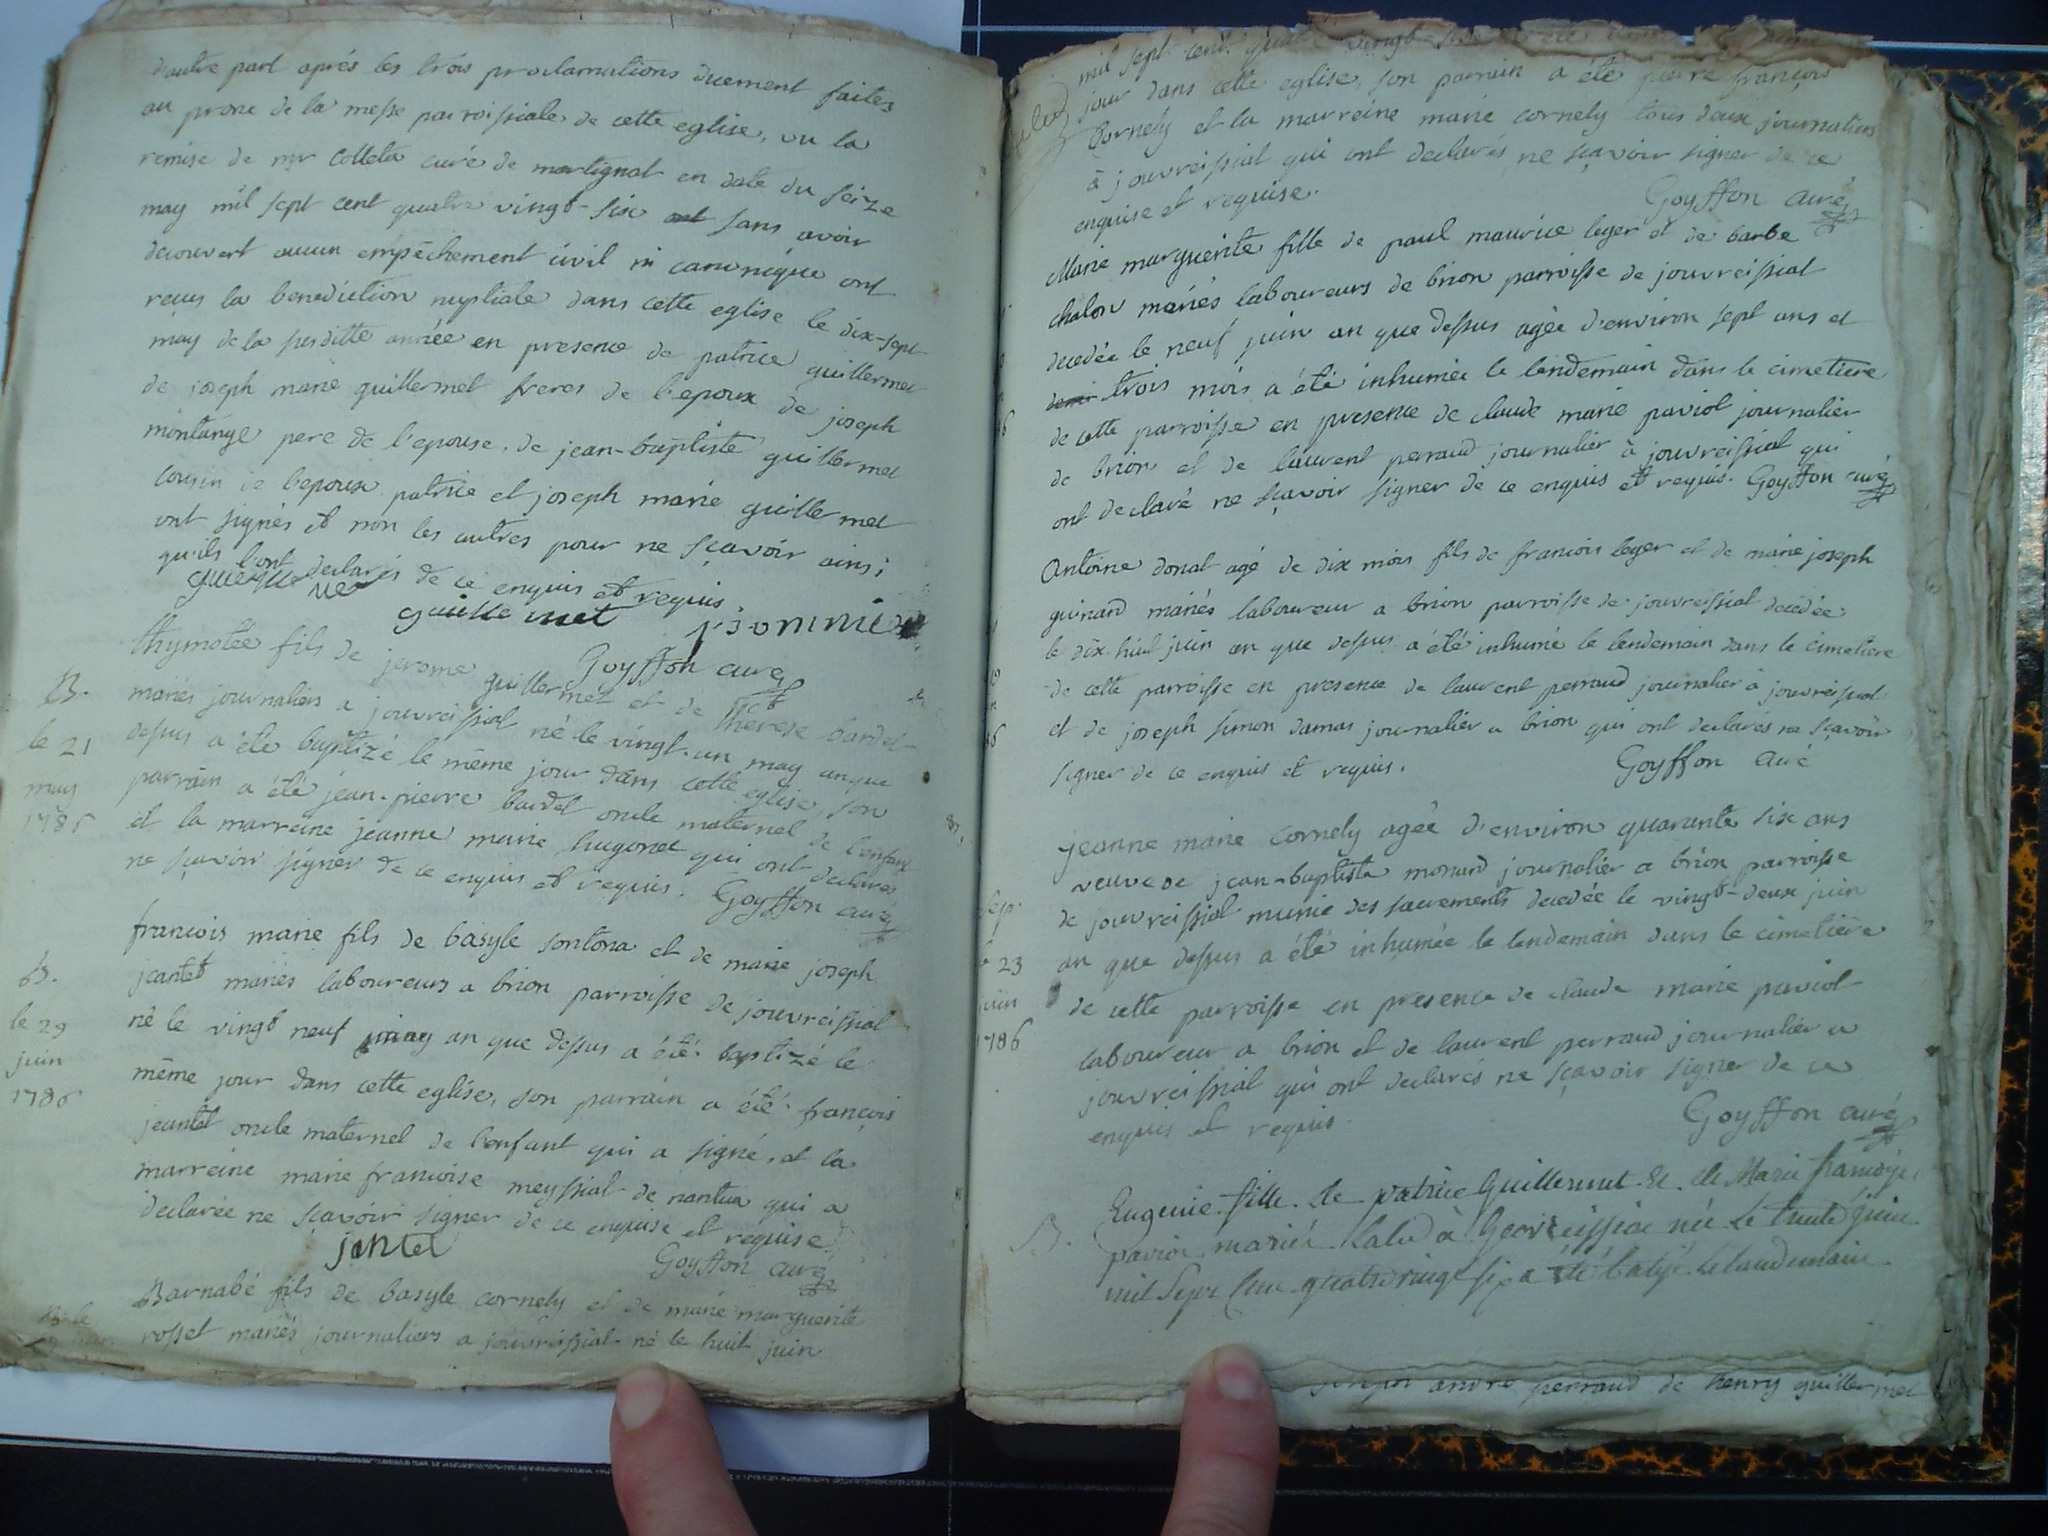 d'autre part aprés les trois proclamations duement faites
au prone de la messe parroissiale de cette eglise, vu la
remise de mr Colleta curé de martignat en date du seize
may mil sept cent quatre vingt-six sans avoir
decouvert aucun empêchement civil ni canonique ont
reçus la benediction nuptiale dans cette eglise le dix-sept
may de la susditte année en presence de patrice guillermet
de joseph marie guillermet freres de l'epoux de joseph
montange pere de l'epouse. de jean-baptiste guillermet
cousin de l'epoux patrice et joseph marie guillermet
ont signés et non les autres pour ne sçavoir ainsi
qu'ils l'ont declarés de ce enquis et requis.
guille met
Goyffon curé
B.
le 21
may
1786
thymotée fils de jerome guillermet et de therese bardet
mariés journaliers a jouvreissiat né le vingt-un may an que
dessus a été baptizé le même jour dans cette eglise, son
parrain a été jean-pierre bardet oncle maternel de l'enfant
et la marreine jeanne marie hugonet qui ont declarés
ne sçavoir signer de ce enquis et requis. Goyffon curé
B.
le 29
juin
1786
francois marie fils de basyle sontona et de marie joseph
jeantet mariés laboureurs a brion parroisse de jouvreissiat
né le vingt neuf may an que dessus a été baptizé le
même jour dans cette eglise, son parrain a été françois
jeantet oncle maternel de l'enfant qui a signé, et la
marreine marie francoise meyssiat de nantua qui a
declarée ne sçavoir signer de ce enquise et requise
jantet
Goyffon curé
B. le
Barnabé fils de basyle cornely et de marie marguerite
rosset mariés journaliers a jouvreissiat né le huit juin
mil sept cent quatre vingt six
jour dans cette eglise, son parrain a été pierre françois
Cornely et la marreine marie cornely tous deux journaliers
à jouvreissiat qui ont declarés ne sçavoir signer de ce
enquise et requise.
Goyffon curé
Marie marguerite fille de paul maurice leger et de barbe
chalon mariés laboureurs de brion parroisse de jouvreissiat
decedée le neuf juin an que dessus agée d'environ sept ans et
trois mois a été inhumée le lendemain dans le cimetiere
de cette parroisse en presence de claude marie paviot journalier
de brion et de laurent perraud journalier à jouvreissiat qui
ont declaré ne sçavoir signer de ce enquis et requis. Goyffon curé
Antoine donat agé de dix mois fils de francois leger et de marie joseph
guinard mariés laboureur a brion parroisse de jouvreissiat decédée
le dix-huit juin an que dessus a été inhumé le lendemain dans le cimetiere
de cette parroisse en presence de laurent perraud journalier à jouvreissiat
et de joseph simon damas journalier a brion qui ont declarés ne sçavoir
signer de ce enquis et requis.
Goyffon curé
sep.
le 23
juin
1786
jeanne marie cornely agée d'environ quarante six ans
veuve de jean-baptiste monard journalier a brion parroisse
de jouvreissiat munie des sacrements decedée le vingt-deux juin
an que dessus a été inhumée le lendemain dans le cimetiere
de cette parroisse en presence de claude marie paviot
laboureur a brion et de laurent perraud journalier a
jouvreissiat qui ont declarés ne sçavoir signer de ce
enquis et requis.
Goyffon curé
B.
Eugenie fille de patrice Guillermet & de Marie francoise
paviot mariés à Geovreissiat née le trente juin
mil sept cent quatre vingt six a été batisé le lendemain
andré perraud de henry guillermet